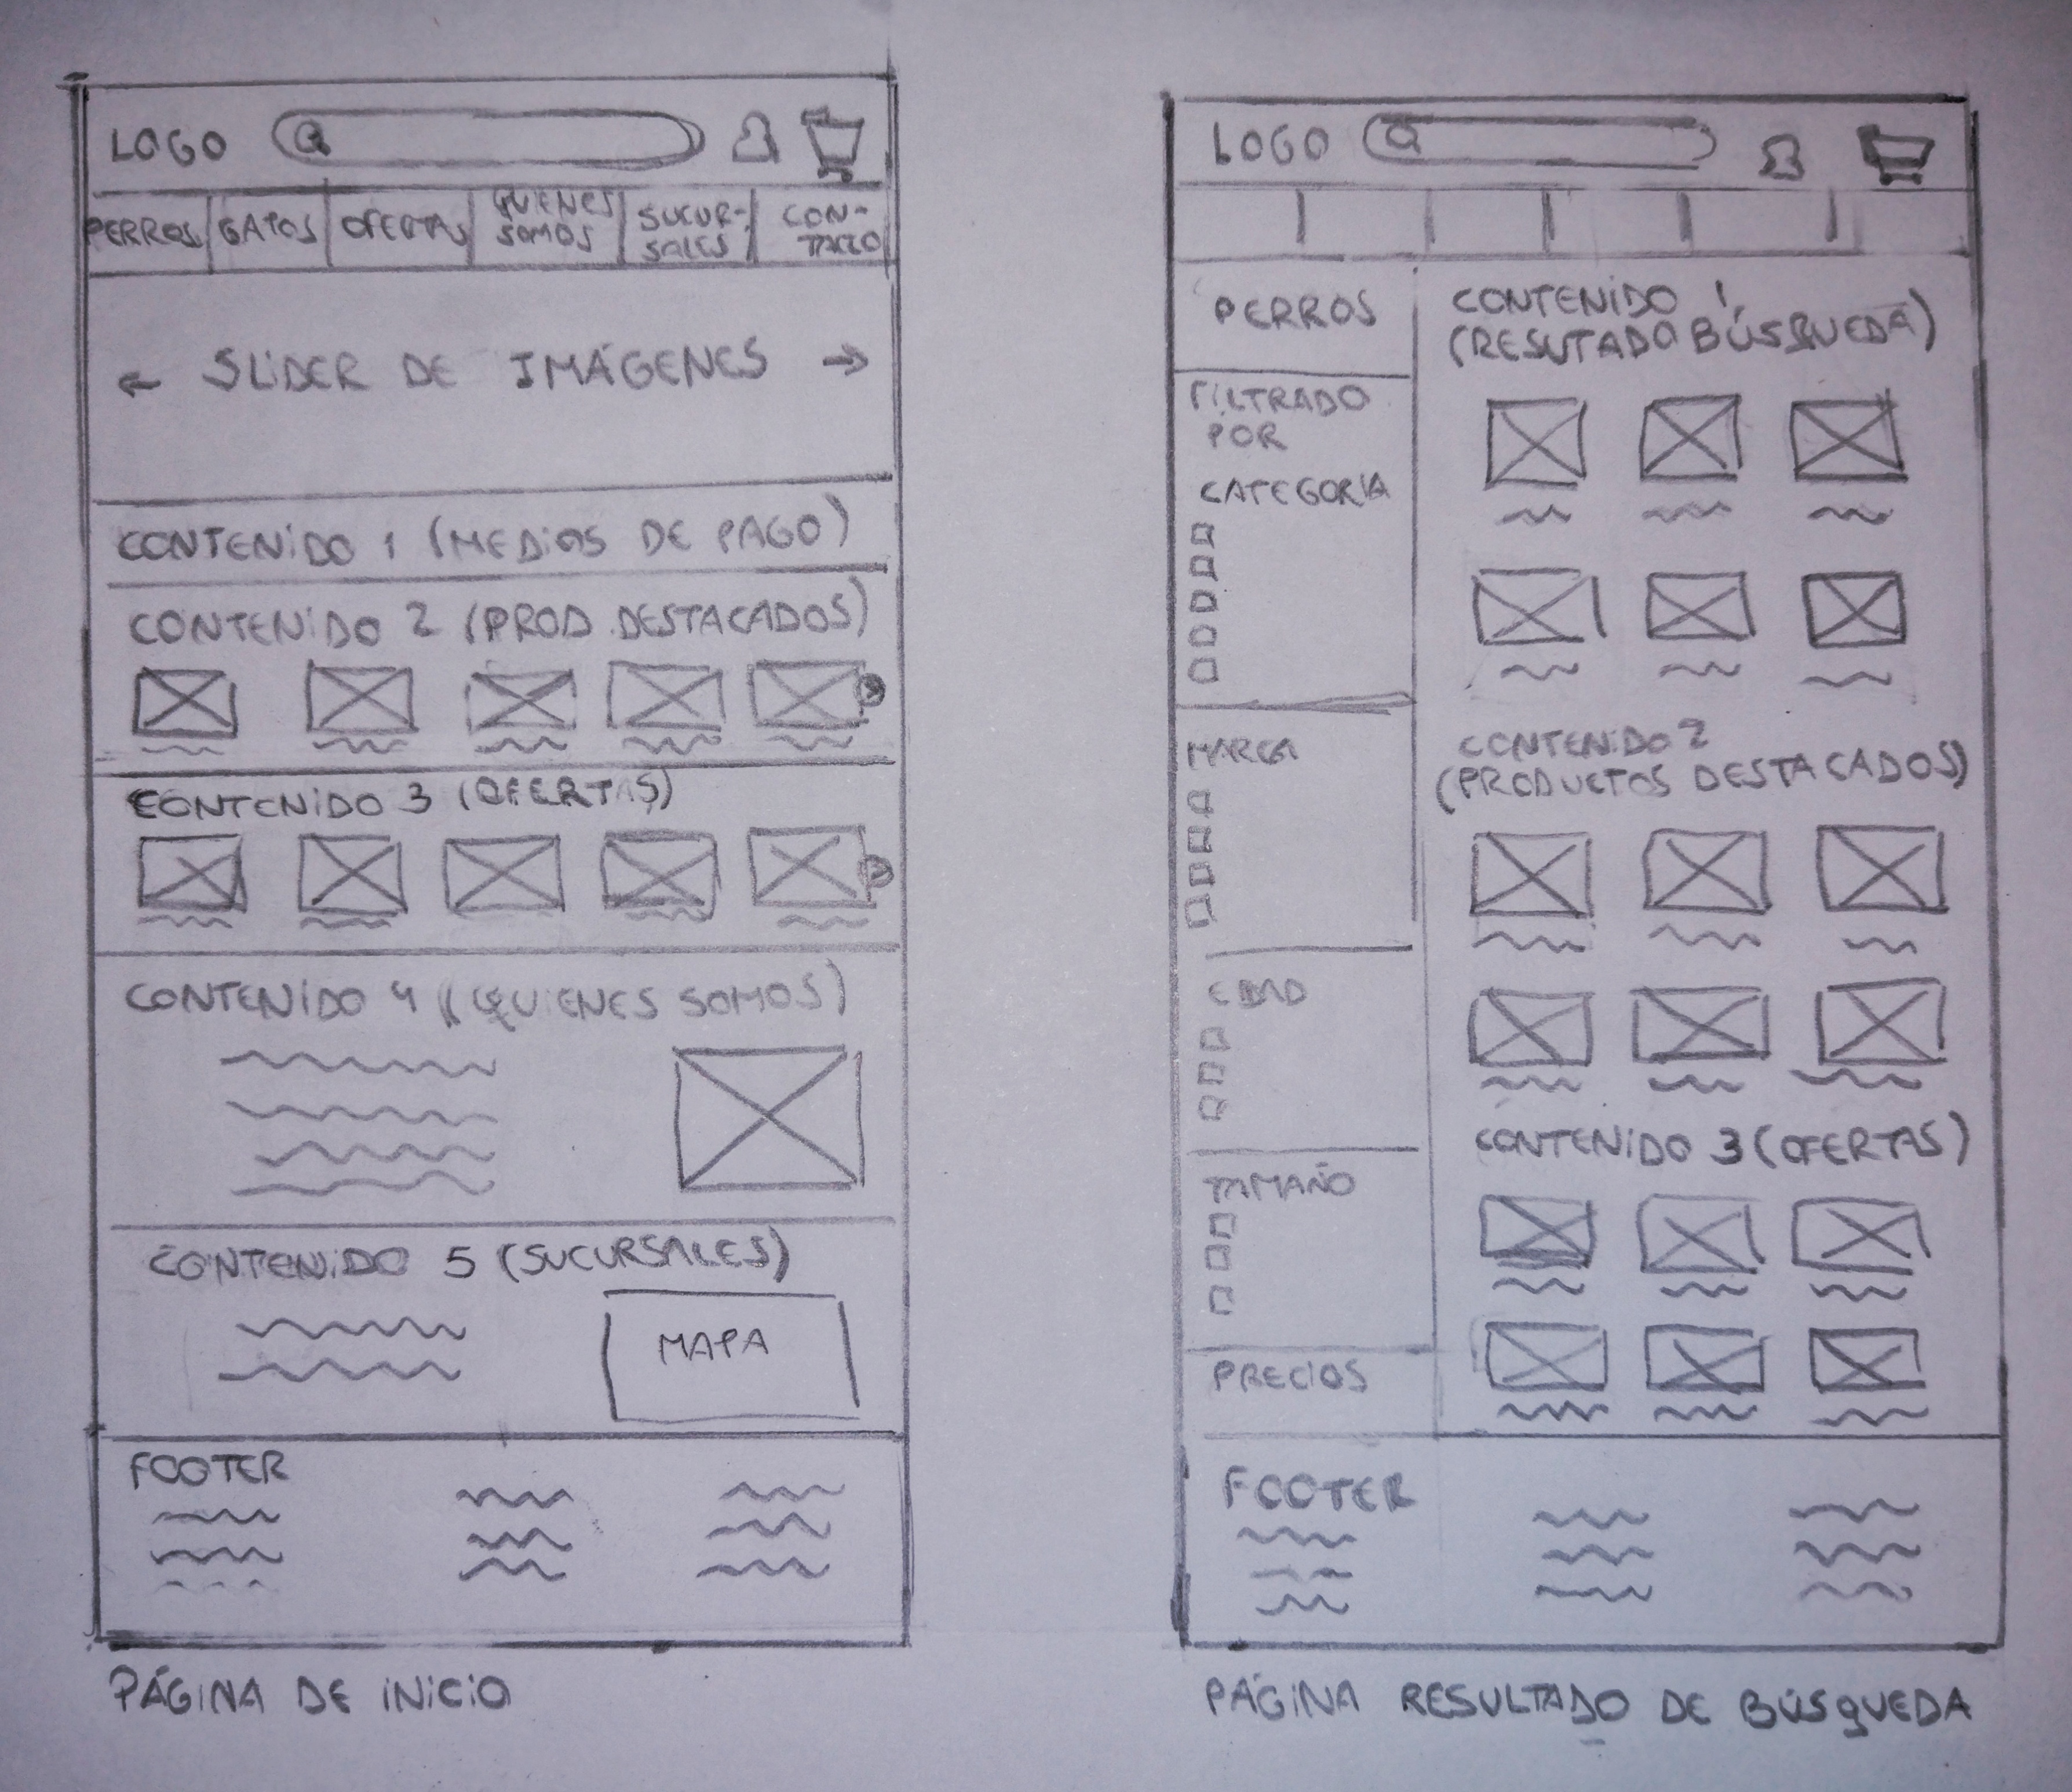 LOGO
PERROS GATOS OFERTAS QUIENES SOMOS SUCUR-SALES CON-TACTO
← SLIDER DE IMÁGENES →
CONTENIDO 1 (MEDIOS DE PAGO)
CONTENIDO 2 (PROD. DESTACADOS)
CONTENIDO 3 (OFERTAS)
CONTENIDO 4 (QUIENES SOMOS)
CONTENIDO 5 (SUCURSALES)
MAPA
FOOTER
PÁGINA DE INICIO
LOGO
PERROS
FILTRADO
POR
CATEGORIA
MARCA
EDAD
TAMAÑO
PRECIOS
CONTENIDO 1
(RESUTADO BÚSQUEDA)
CONTENIDO 2
(PRODUCTOS DESTACADOS)
CONTENIDO 3 (OFERTAS)
FOOTER
PÁGINA RESULTADO DE BÚSQUEDA